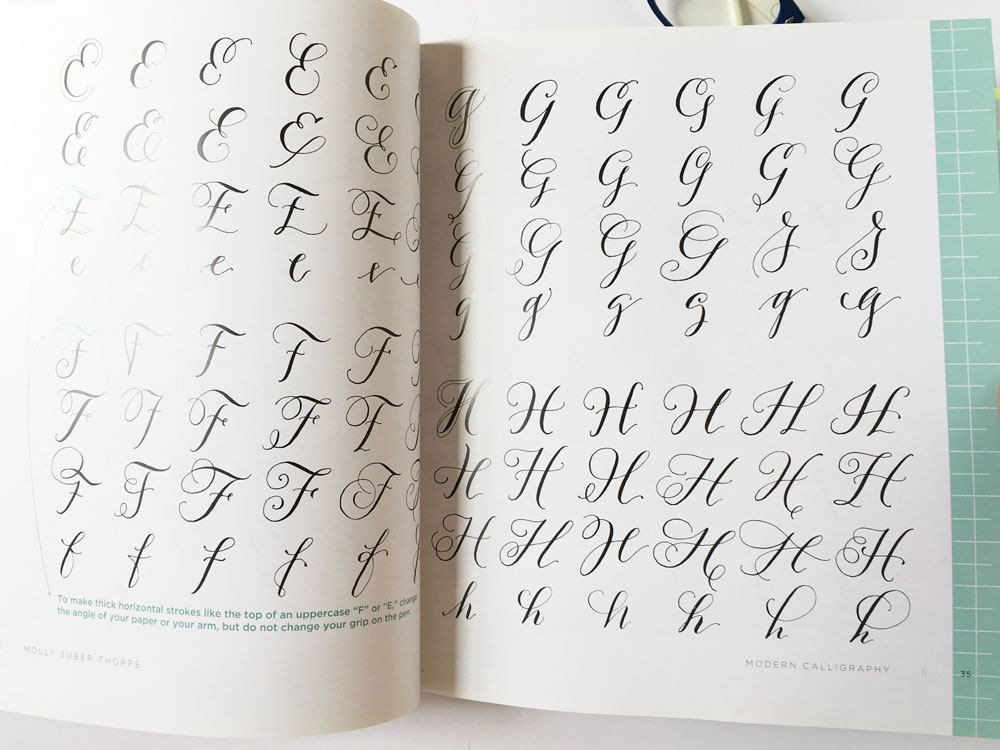 E E E E E
E E E E E
E E E E E
e e e e e
F F F F F
F F F F F
F F F F F
f f f f f
To make thick horizontal strokes like the top of an uppercase "F" or "E," change
the angle of your paper or your arm, but do not change your grip on the pen.
MOLLY SUBER THORPE
G G G G G G
G G G G G G
G G G G G G
g g g g g g
H H H H H H
H H H H H H
H H H H H H
h h h h h h
MODERN CALLIGRAPHY
35